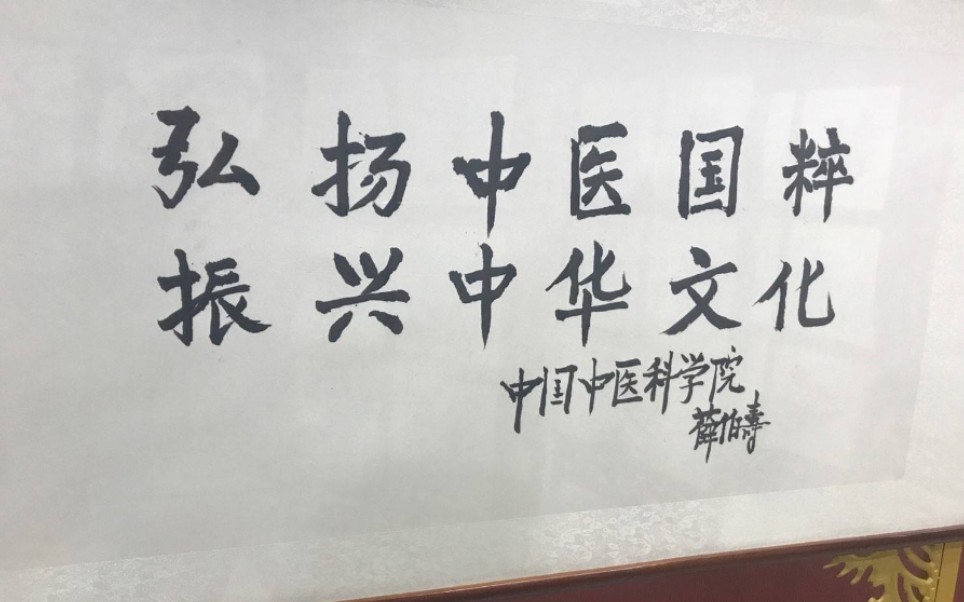 弘扬中医国粹
振兴中华文化
中国中医科学院
薛伯寿